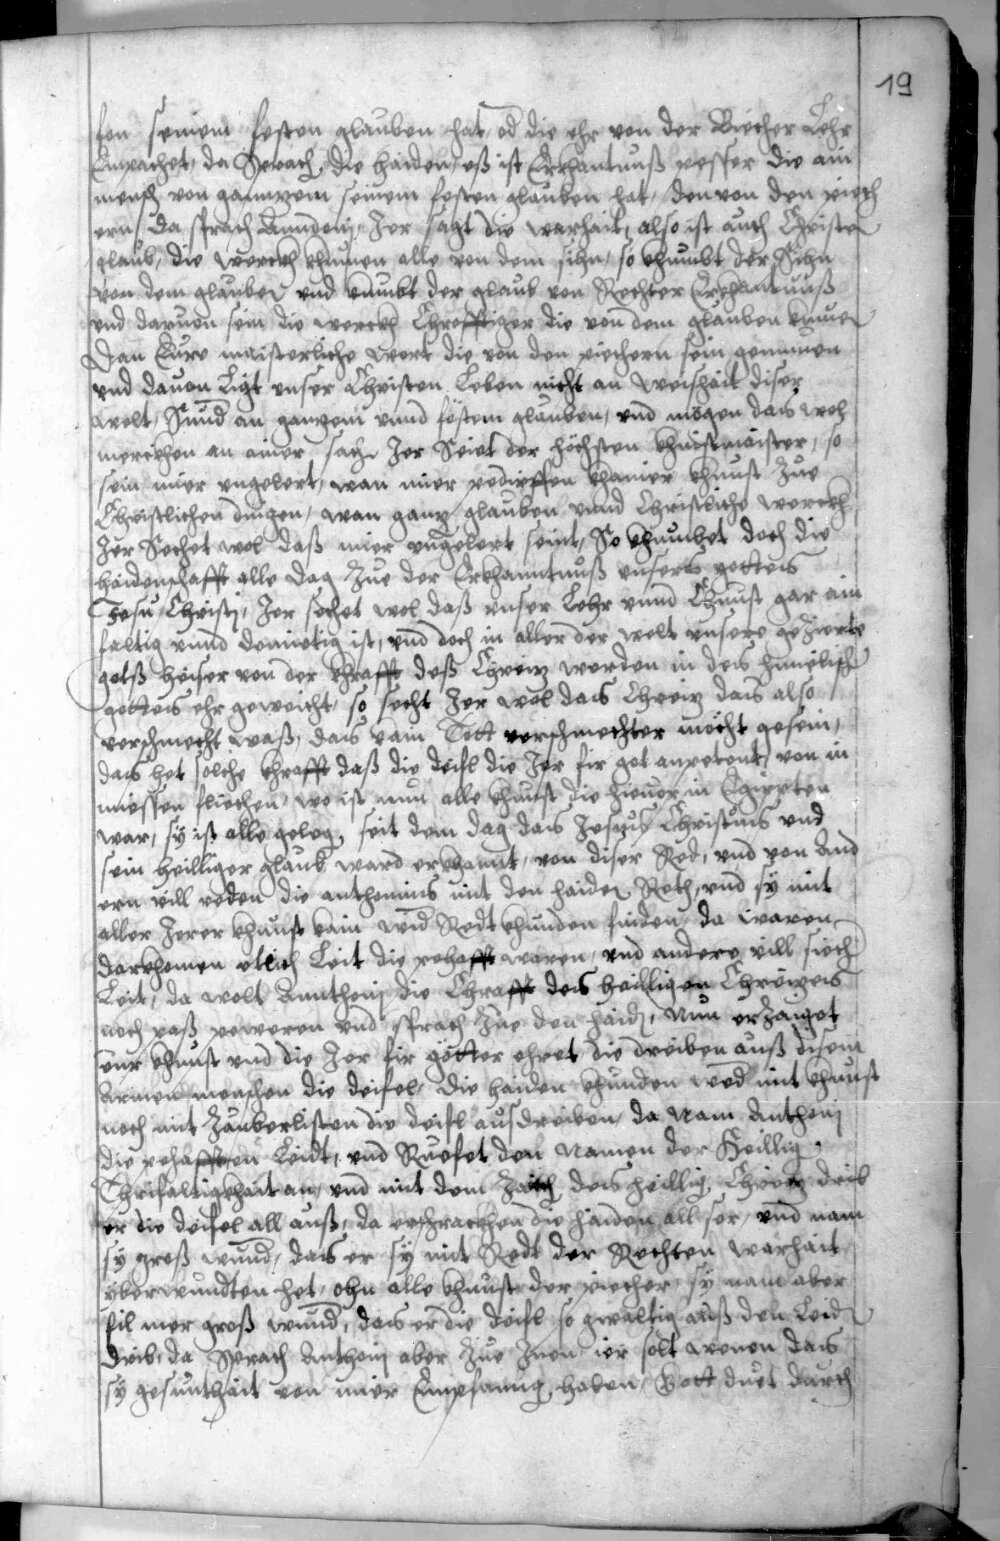 19
fon seinem festen glauben hat, od die ehr von der Biecher Lehr
Empachet, da Sprach die haiden, eß ist Erkhantnuß pesser die ain
mensch von ganzem seinem festen glauben hat, den von den piech
ern, da sprach Anndonj, Jer sagt die warhait, also ist auch Christen
glaub, die werckh khumen alle von dem sihn, so khumbt der Sihn
von dem glauben und kumbt der glaub von Rechter Erkhantnuß
und daruon sein die werckh Chrefftiger die von dem glauben kumen
Dan Eure maisterliche wort die von den piechern sein genumen
und dauon Ligt unser Christen Leben nicht an weishait diser
welt, Sund an ganzem unnd festem glauben, und mögen das wol
merckhen an ainer sach Jer Seiet der höchsten khunstmaister, so
sein mier ungelert, wan mier pedirffen khainer khunst Zue
Christlichen dingen, wan ganz glauben unnd Christliche werckh
Jer Sechet wol daß mier ungelert seint, So khumbet doch die
haidenschafft alle dag Zue der Erkhanntnuß unsers gottes
Jesu Christj, Jer sechet wol daß unser Lehr unnd Khunst gar ain
faltig unnd demietig ist, und doch in aller der welt unsere gezierte
gotß heiser von der khrafft deß Chreiz werden in des himelisch
gottes ehr geweicht, so secht Jer wol das Chreiz das also
verschmecht waß, das kain Tott verschmechter mocht gesein,
das het solche khrafft daß die deifl die Jer fir got anpetent, von in
miessen fliechen, wo ist nun alle khunst die hieuor in Egipten
war, sy ist alle geleg, seit dem dag das Jesus Christus und
sein heilliger glaub ward erkhannt, von diser Red, und von And
ern vill reden die anthonius mit den haiden Reth, und sy mit
aller Jerer khunst kain wid Redt khunden finden, da waren
darkhomen etlich Leit die pehafft waren, und andere vill siech
Leit, da wolt Annthonj die Chrafft des heilligen Chreizes
noch paß peweren und sprach Zue den haidn, Nun erzaiget
eur khunst und die Jer fir götter ehret die dreiben auß disem
Armen menschen die deifel, die haiden khunden wed mit khunst
noch mit Zauberlisten die deifl ausdreiben, da Nam Anthonj
die pehafften Leidt, und Ruefet den Namen der Heillig
Thrifaltigkhait an, und mit dem Zaich des heillig Chreiz drib
er die deifel all auß, da erschrackhen die haiden all ser, und nam
sy groß wund, das er sy mit Redt der Rechten warhait
yberwundten het, ohn alle khunst der piecher, sy nam aber
fil mer groß wund, das er die deifl so gwaltig auß den Leidn
drib, da Sprach Anthonj aber Zue Jnen ier solt wenen das
sy gesunthait von mier Empfanng haben, Gott duet durch